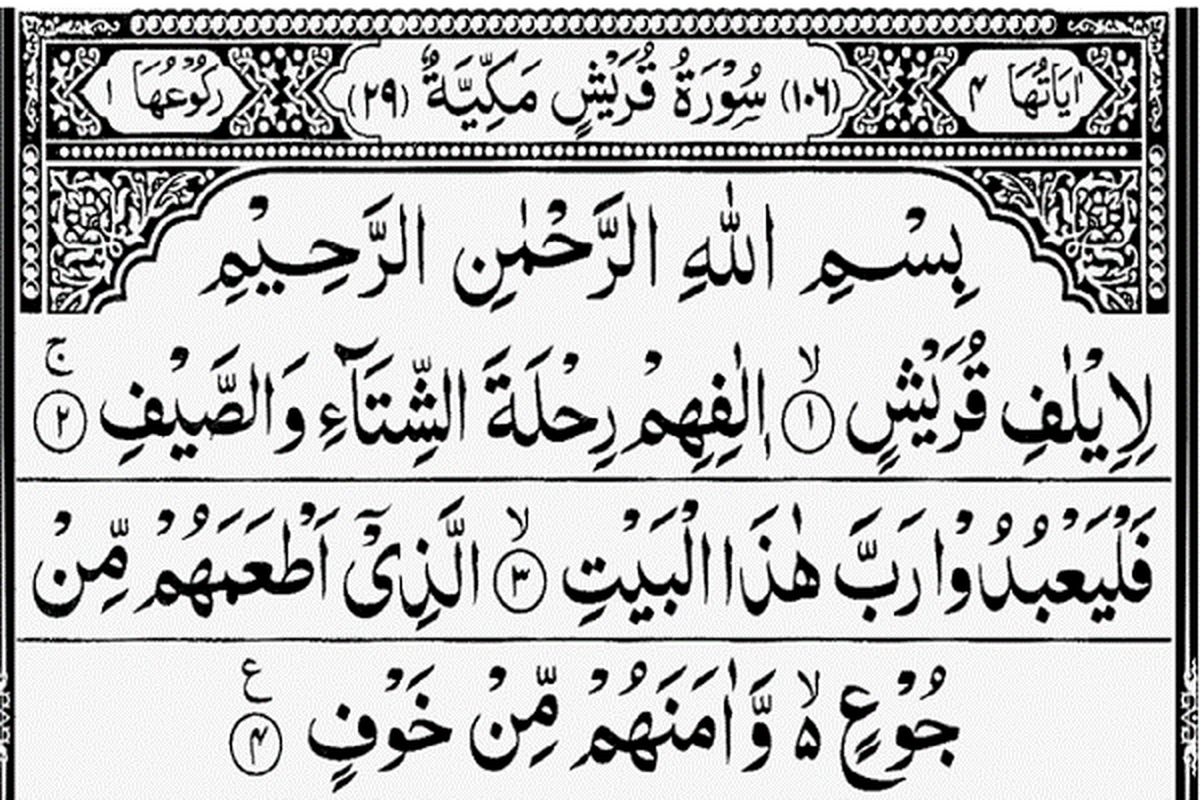 اٰيَاتُهَا ۴ (۱۰۶) سُوْرَةُ قُرَيْشٍ مَكِّيَّةٌ (۲۹) رَكُوْعُهَا ۱
بِسْمِ اللّٰهِ الرَّحْمٰنِ الرَّحِيْمِ
لِاِيْلٰفِ قُرَيْشٍ ۙ ﴿۱﴾ اٖلٰفِهِمْ رِحْلَةَ الشِّتَآءِ وَالصَّيْفِ ۚ ﴿۲﴾
فَلْيَعْبُدُوْا رَبَّ هٰذَا الْبَيْتِ ۙ ﴿۳﴾ الَّذِىْٓ اَطْعَمَهُمْ مِّنْ
جُوْعٍ ۙ۬ وَّاٰمَنَهُمْ مِّنْ خَوْفٍ ﴿۴﴾ ع